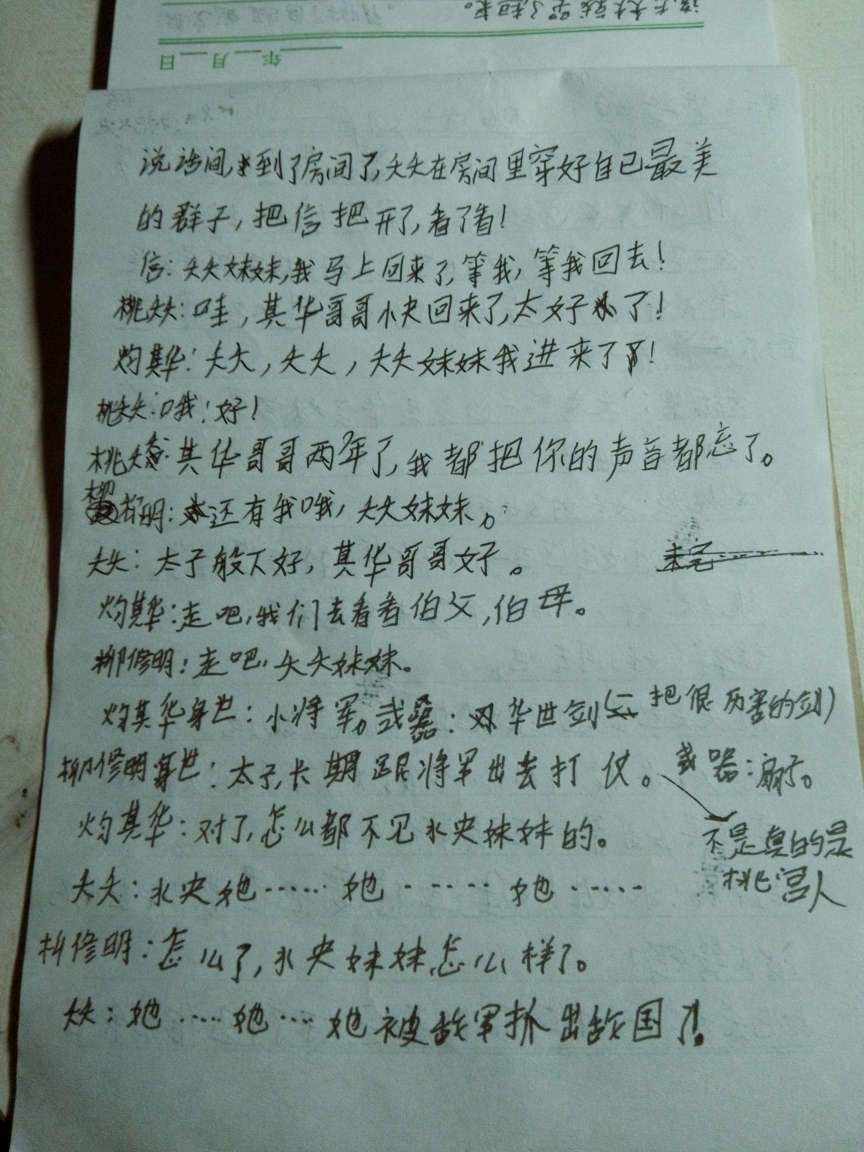 年 月 日
说话间,到了房间了,夭夭在房间里穿好自己最美
的群子,把信把开了,看了看!
信:夭夭妹妹,我马上回来了,等我,等我回去!
桃夭夭:哇,其华哥哥小夬回来了,太好了!
灼其华:夭夭,夭夭,夭夭妹妹我进来了!
桃夭夭:哦!好!
桃夭夭:其华哥哥两年了,我都把你的声音都忘了。
柳修明:还有我哦,夭夭妹妹。
夭夭:太子般下好,其华哥哥好。
灼其华:走吧,我们去看看伯父,伯母。
柳修明:走吧,夭夭妹妹。
灼其华身世:小将军。武器:华世剑(一把很厉害的剑)
柳修明身世:太子,长期跟将军出去打仗。武器:扇子。
不是真的是
桃宫人
灼其华:对了,怎么都不见水央妹妹的。
夭夭:水央她……她……她……
柳修明:怎么了,水央妹妹怎么样了。
夭夭:她……她…她被敌军抓出敌国了!